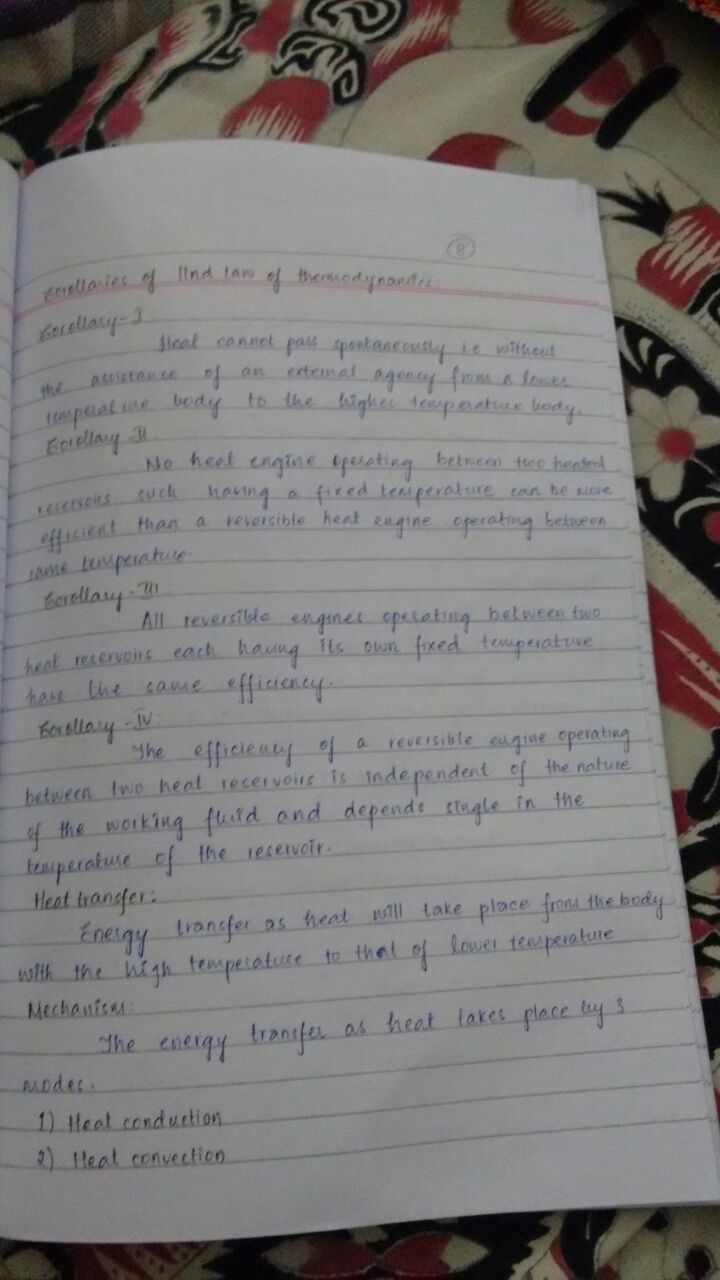 8
Corollaries of IInd law of thermodynamics:
Corollary-I
Heat cannot pass spontaneously i.e without
the assistance of an external agency from a lower
temperature body to the higher temperature body.
Corollary-II
No heat engine operating between two heated
reservoirs such having a fixed temperature can be more
efficient than a reversible heat engine operating between
same temperature.
Corollary-III:
All reversible engines operating between two
heat reservoirs each having its own fixed temperature
have the same efficiency.
Corollary-IV:
The efficiency of a reversible engine operating
between two heat reservoirs is independent of the nature
of the working fluid and depends single in the
temperature of the reservoir.
Heat transfer:
Energy transfer as heat will take place from the body
with the high temperature to that of lower temperature
Mechanism:
The energy transfer as heat takes place by 3
modes.
1) Heat conduction
2) Heat convection